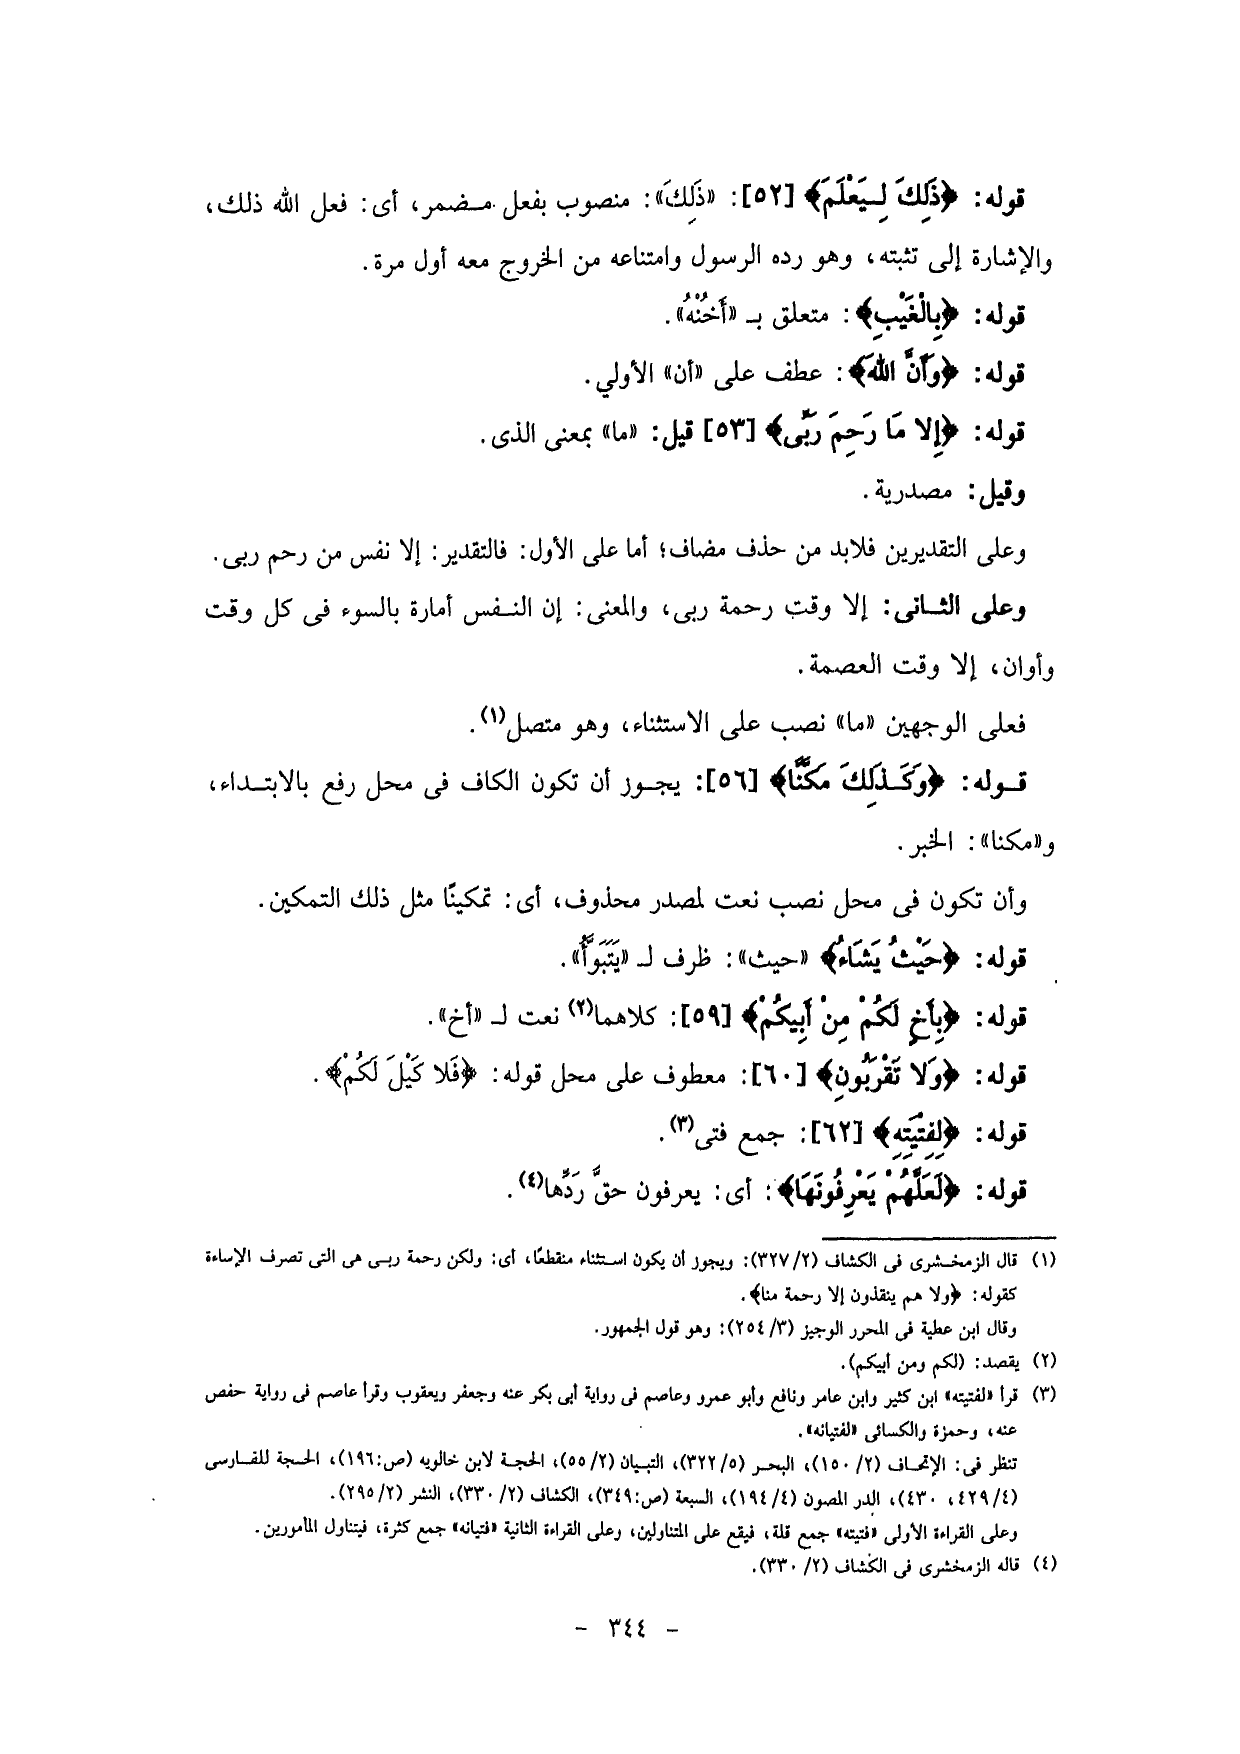 قوله: ﴿ذَلِكَ لِيَعْلَمَ﴾ [٥٢]: «ذَلِكَ»: منصوب بفعل مضمر، أى: فعل الله ذلك،
والإشارة إلى تثبته، وهو رده الرسول وامتناعه من الخروج معه أول مرة.
قوله: ﴿بِالْغَيْبِ﴾: متعلق بـ «أَخُنْهُ».
قوله: ﴿وَأَنَّ اللَّهَ﴾: عطف على «أن» الأولي.
قوله: ﴿إِلا مَا رَحِمَ رَبِّى﴾ [٥٣] قيل: «ما» بمعنى الذى.
وقيل: مصدرية.
وعلى التقديرين فلابد من حذف مضاف؛ أما على الأول: فالتقدير: إلا نفس من رحم ربى.
وعلى الثانى: إلا وقت رحمة ربى، والمعنى: إن النفس أمارة بالسوء فى كل وقت
وأوان، إلا وقت العصمة.
فعلى الوجهين «ما» نصب على الاستثناء، وهو متصل(١).
قوله: ﴿وَكَذلِكَ مَكَّنَّا﴾ [٥٦]: يجوز أن تكون الكاف فى محل رفع بالابتداء،
و«مكنا»: الخبر.
وأن تكون فى محل نصب نعت لمصدر محذوف، أى: تمكينًا مثل ذلك التمكين.
قوله: ﴿حَيْثُ يَشَاءُ﴾ «حيث»: ظرف لـ «يَتَبَوَّأُ».
قوله: ﴿بِأَخٍ لَكُمْ مِنْ أَبِيكُمْ﴾ [٥٩]: كلاهما(٢) نعت لـ «أخ».
قوله: ﴿وَلا تَقْرَبُونِ﴾ [٦٠]: معطوف على محل قوله: ﴿فَلا كَيْلَ لَكُمْ﴾.
قوله: ﴿لِفِتْيَتِهِ﴾ [٦٢]: جمع فتى(٣).
قوله: ﴿لَعَلَّهُمْ يَعْرِفُونَهَا﴾: أى: يعرفون حقَّ رَدِّها(٤).
(١) قال الزمخشرى فى الكشاف (٢/ ٣٢٧): ويجوز أن يكون استثناء منقطعًا، أى: ولكن رحمة ربى هى التى تصرف الإساءة
كقوله: ﴿ولا هم ينقذون إلا رحمة منا﴾.
وقال ابن عطية فى المحرر الوجيز (٣/ ٢٥٤): وهو قول الجمهور.
(٢) يقصد: (لكم ومن أبيكم).
(٣) قرأ «لفتيته» ابن كثير وابن عامر ونافع وأبو عمرو وعاصم فى رواية أبى بكر عنه وجعفر ويعقوب وقرأ عاصم فى رواية حفص
عنه، وحمزة والكسائى «لفتيانه».
تنظر فى: الإتحاف (٢/ ١٥٠)، البحر (٥/ ٣٢٢)، التبيان (٢/ ٥٥)، الحجة لابن خالويه (ص:١٩٦)، الحجة للفارسى
(٤/ ٤٢٩، ٤٣٠)، الدر المصون (٤/ ١٩٤)، السبعة (ص:٣٤٩)، الكشاف (٢/ ٣٣٠)، النشر (٢/ ٢٩٥).
وعلى القراءة الأولى «فتيته» جمع قلة، فيقع على المتناولين، وعلى القراءة الثانية «فتيانه» جمع كثرة، فيتناول المأمورين.
(٤) قاله الزمخشرى فى الكشاف (٢/ ٣٣٠).
- ٣٤٤ -